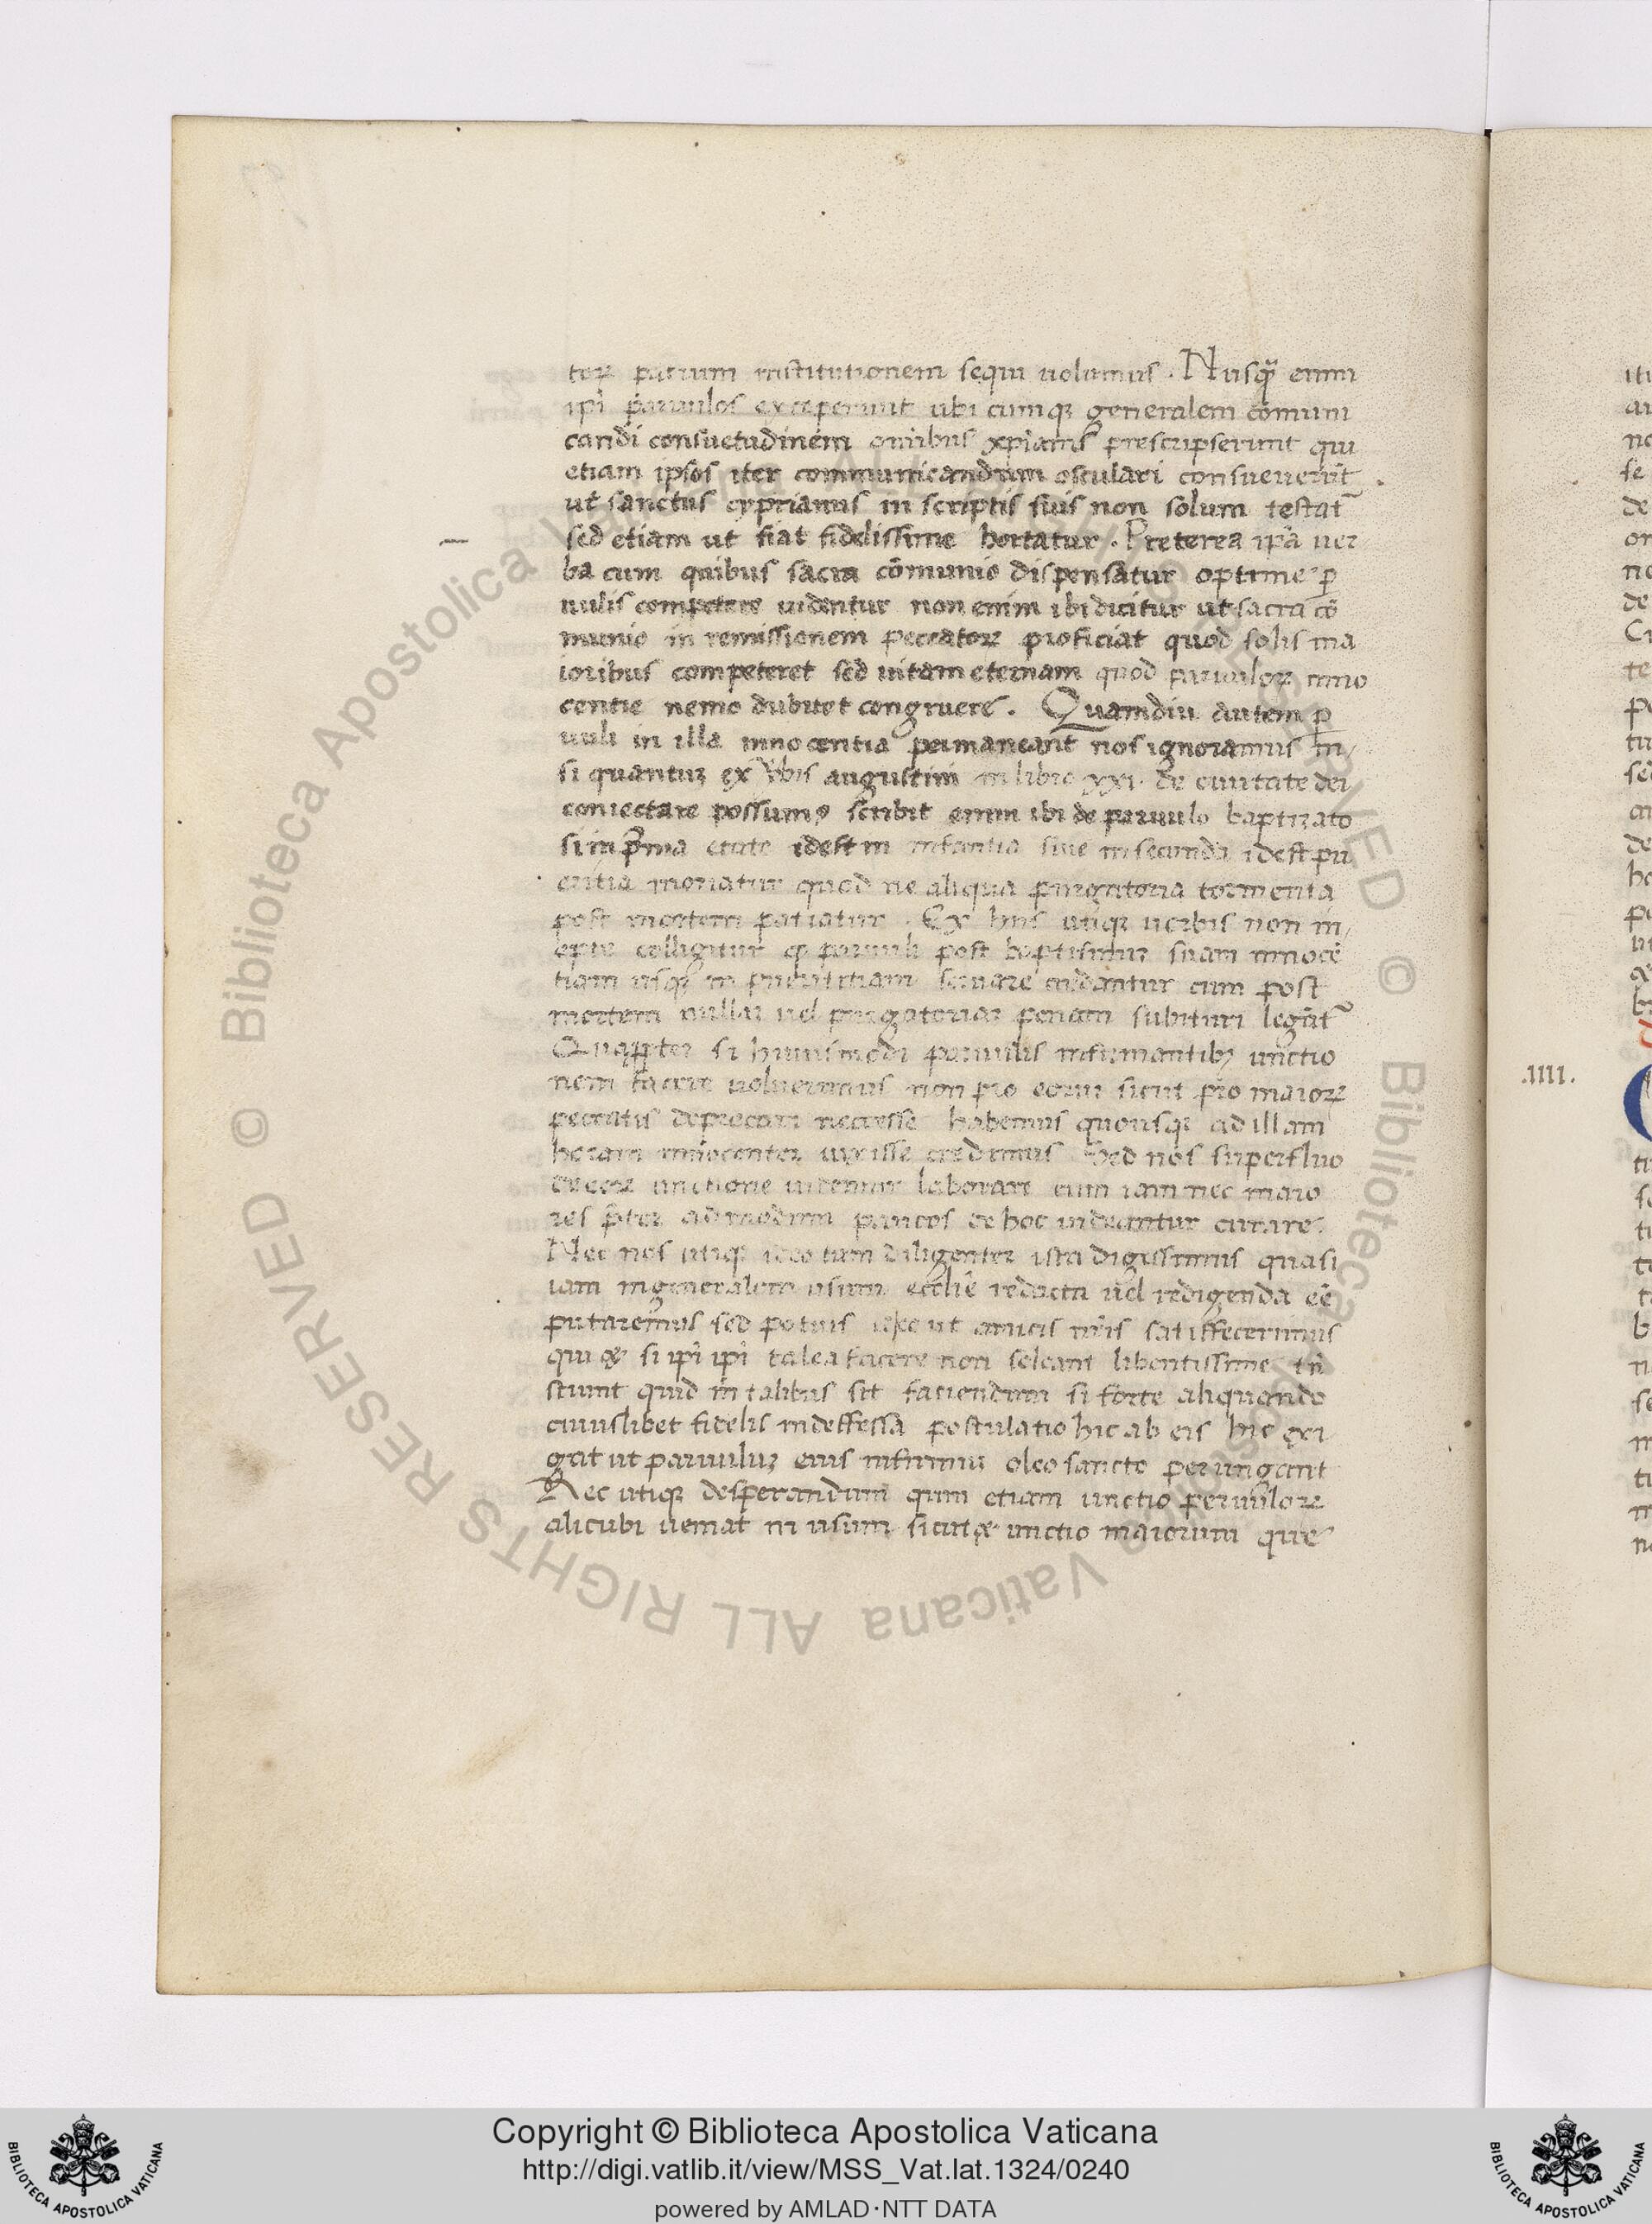 toꝝ patrum institutionem sequi uolumus . Nusqȝ enim
ipi paruulos exceperunt ubi cumqȝ generalem cōmuni
candi consuetudinem omībus xp̄ianis prescripserunt qui
etiam ipsos iter communicandum osculari consueuerūt .
ut sanctus cyprianus in scriptis suis non solum testat᷑
sed etiam ut fiat fidelissime hortatur . Preterea ip̄a uer
ba cum quibus sacra cōmunio dispensatur optime ꝑ
uulis competere uidentur non enim ibi dicitur ut sacra cō
munio in remissionem peccatoꝝ proficiat quod solis ma
ioribus competeret sed uitam eternam quod paruuloꝝ inno
centie nemo dubitet congruere . Quamdiu autem ꝑ
uuli in illa innocentia permaneant nos ignoramus ni/
si quantuȝ ex ūbis augustini in libro xxi. de ciuitate dei
coniectare possumꝰ scribit enim ibi de paruulo baptizato
si in p̄ma etate idest in infantia siue in secunda idest pu
eritia moriatur quod ne aliqua purgatoria tormenta
post mortem patiatur . Ex hiis utiqȝ uerbis non in/
epte colligitur ꝙ paruuli post baptismuȝ suam innocē
tiam usqȝ in pueritiam seruare credantur cum post
mortem nullaȝ uel purgatoriaȝ penam subituri legāt᷑
Quaꝓpter si huiusmodi paruulis infirmantibȝ unctio
nem facere uoluerimus non pro eorum sicut pro maioꝝ
peccatis deprecari necesse habemus quousqȝ ad illam
horam innocenter uixisse credimus Sed nos superfluo
de eoꝝ unctione uidemur laborare cum iam nec maio
res p̄ter admodum paucos de hoc uideantur curare.
Nec nos utiqȝ ideo tam diligenter ista digessimus quasi
iam in generalem usum ecclīe redacta uel redigenda eē
putaremus sed potius ut amicis nr̄is satisfecerimus
qui & si ip̄i talea facere non soleant libentissime tn̄
sciunt quid in talibus sit faciendum si forte aliquando
cuiuslibet fidelis indeffessa postulatio hic ab eis hic exi
gat ut paruuluȝ eius infirmū oleo sancto perungant
Nec utiqȝ desperandum qum etiam unctio peruuloꝝ
alicubi ueniat in usum sicut & unctio maiorum que
.IIII.
Copyright © Biblioteca Apostolica Vaticana
http://digi.vatlib.it/view/MSS_Vat.lat.1324/0240
powered by AMLAD·NTT DATA
BIBLIOTECA APOSTOLICA VATICANA
BIBLIOTECA APOSTOLICA VATICANA
© Biblioteca Apostolica Vaticana ALL RIGHTS RESERVED © Biblioteca Apostolica Vaticana ALL RIGHTS RESERVED